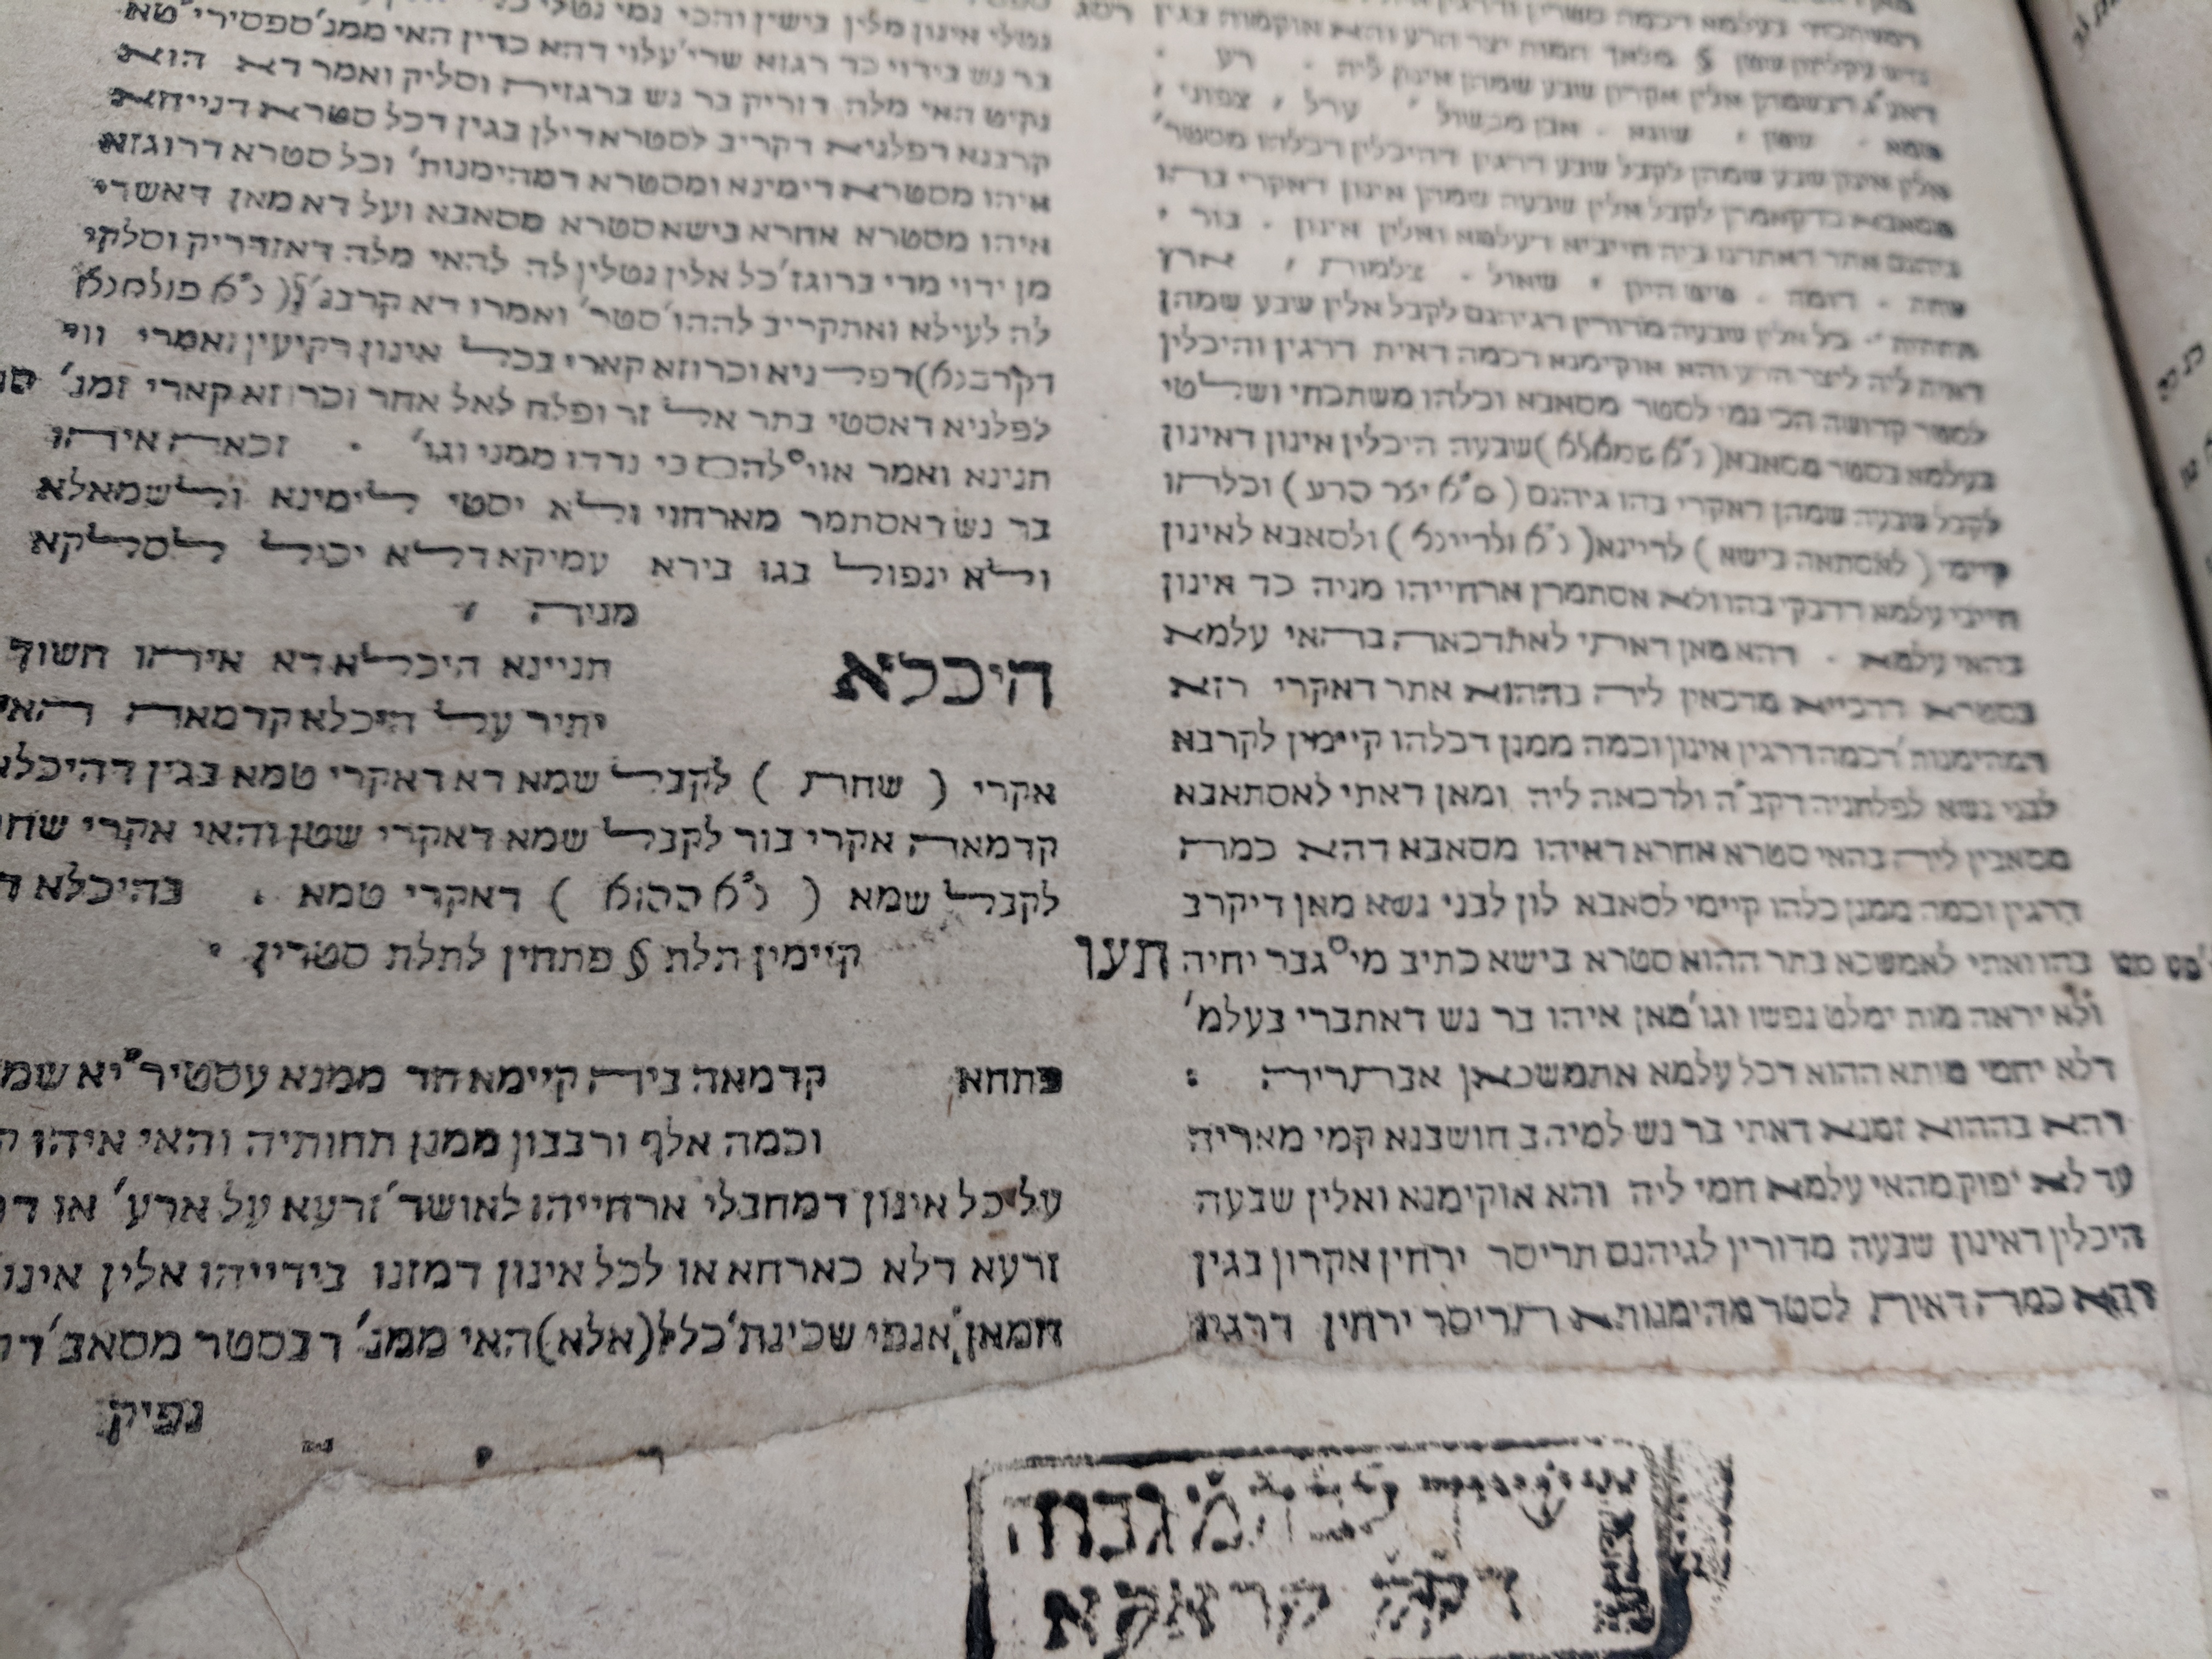 דאע"ג דבשמהן אלין אקרון שבע שמהן אינון ליה . רע .
טמא . שטן . שונא . אבן מכשול . ערל . צפוני .
אלין אינון שבע שמהן לקבל שבע דרגין דהיכלין דכלהו מסטר'
מסאבא כדקאמרן לקבל אלין שבעה שמהן אינון דאקרי בהו
גיהנם אתר דאתדנו ביה חייביא דעלמא ואלין אינון . בור .
שחת . דומה . טיט היון . שאול . צלמות . ארץ
תחתית . כל אלין שבעה מדורין דגיהנם לקבל אלין שבע שמהן
דאית ליה ליצר הרע והא אוקימנא דכמה דאית דרגין והיכלין
לסטר קדושה הכי נמי לסטר מסאבא וכלהו משתכחי ושלטי
בעלמא בסטר מסאבא (נ"א שמאלא) שבעה היכלין אינון דאינון
לקבל שבעה שמהן דאקרי בהו גיהנם (ס"א יצר הרע) וכלהו
קיימי (לאסתאה בישא) לדיינא (נ"א ולדיינא) ולסאבא לאינון
חייבי עלמא דדבקי בהו ולא אסתמרן ארחייהו מניה כד אינון
בהאי עלמא . דהא מאן דאתי לאתדכאה בהאי עלמא
בסטרא דדכייא מדכאין ליה בההוא אתר דאקרי רזא
דמהימנות' דכמה דרגין אינון וכמה ממנן דכלהו קיימין לקרבא
לבני נשא לפלחניה דקב"ה ולדכאה ליה ומאן דאתי לאסתאבא
מסאבין ליה בהאי סטרא אחרא דאיהו מסאבא דהא כמה
דרגין וכמה ממנן כלהו קיימי לסאבא לון לבני נשא מאן דיקרב
בהו ואתי לאמשכא בתר ההוא סטרא בישא כתיב מי גבר יחיה
ולא יראה מות ימלט נפשו וגו' מאן איהו בר נש דאתברי בעלמ'
דלא יחמי מותא ההוא דכל עלמא אתמשכאן אבתריה :
דהא בההוא זמנא דאתי בר נש למיהב חושבנא קמי מאריה
עד לא יפוק מהאי עלמא חמי ליה והא אוקימנא ואלין שבעה
היכלין דאינון שבעה מדורין לגיהנם תריסר ירחין אקרון בגין
דהא כמה דאית לסטר מהימנותא תריסר ירחין דרגין
תעו
בר נש בידוי כד רגזא שרי' עלוי דהא כדין האי ממנ' ספסירי"טא
נקיט האי מלה דזריק בר נש ברגזיה וסליק ואמר דא הוא
קרבנא דפלניא דקריב לסטרא דילן בגין דכל סטרא דנייחא
איהו מסטרא דימינא ומסטרא דמהימנות' וכל סטרא דרוגזא
איהו מסטרא אחרא בישא סטרא מסאבא ועל דא מאן דאשדי
מן ידוי מרי ברוגז' כל אלין נטלין לה להאי מלה דאזדריק וסלקי
לה לעילא ואתקריב לההו' סטר' ואמרו דא קרבנ' (נ"א פולחנא
דקרבנא) דפלניא וכרוזא קארי בכל אינון רקיעין ואמרי ווי
לפלניא דאסטי בתר אל זר ופלח לאל אחר וכרוזא קארי זמנ'
תנינא ואמר אוי להם כי נדדו ממני וגו' . זכאה איהו
בר נש דאסתמר מארחוי ולא יסטי לימינא ולשמאלא
ולא ינפול בגו בירא עמיקא דלא יכיל לסלקא
מניה .
היכלא תניינא היכלא דא איהו חשוך
יתיר על היכלא קדמאה האי
אקרי (שחת) לקבל שמא דא דאקרי טמא בגין דהיכלא
קדמאה אקרי בור לקבל שמא דאקרי שטן והאי אקרי שחת
לקבל שמא (נ"א ההוא) דאקרי טמא . בהיכלא
קיימין תלת § פתחין לתלת סטרין .
פתחא קדמאה ביה קיימא חד ממנא עסטיר"יא
וכמה אלף ורבבון ממנן תחותיה והאי איהו
על כל אינון דמחבלי ארחייהו לאושד' זרעא על ארע' או
זרעא דלא כארחא או לכל אינון דמזנו בידייהו אלין
חמאן אנפי שכינת' כלל (אלא) האי ממנ' דבסטר מסאב'
נפיק
דק"ק קראקא